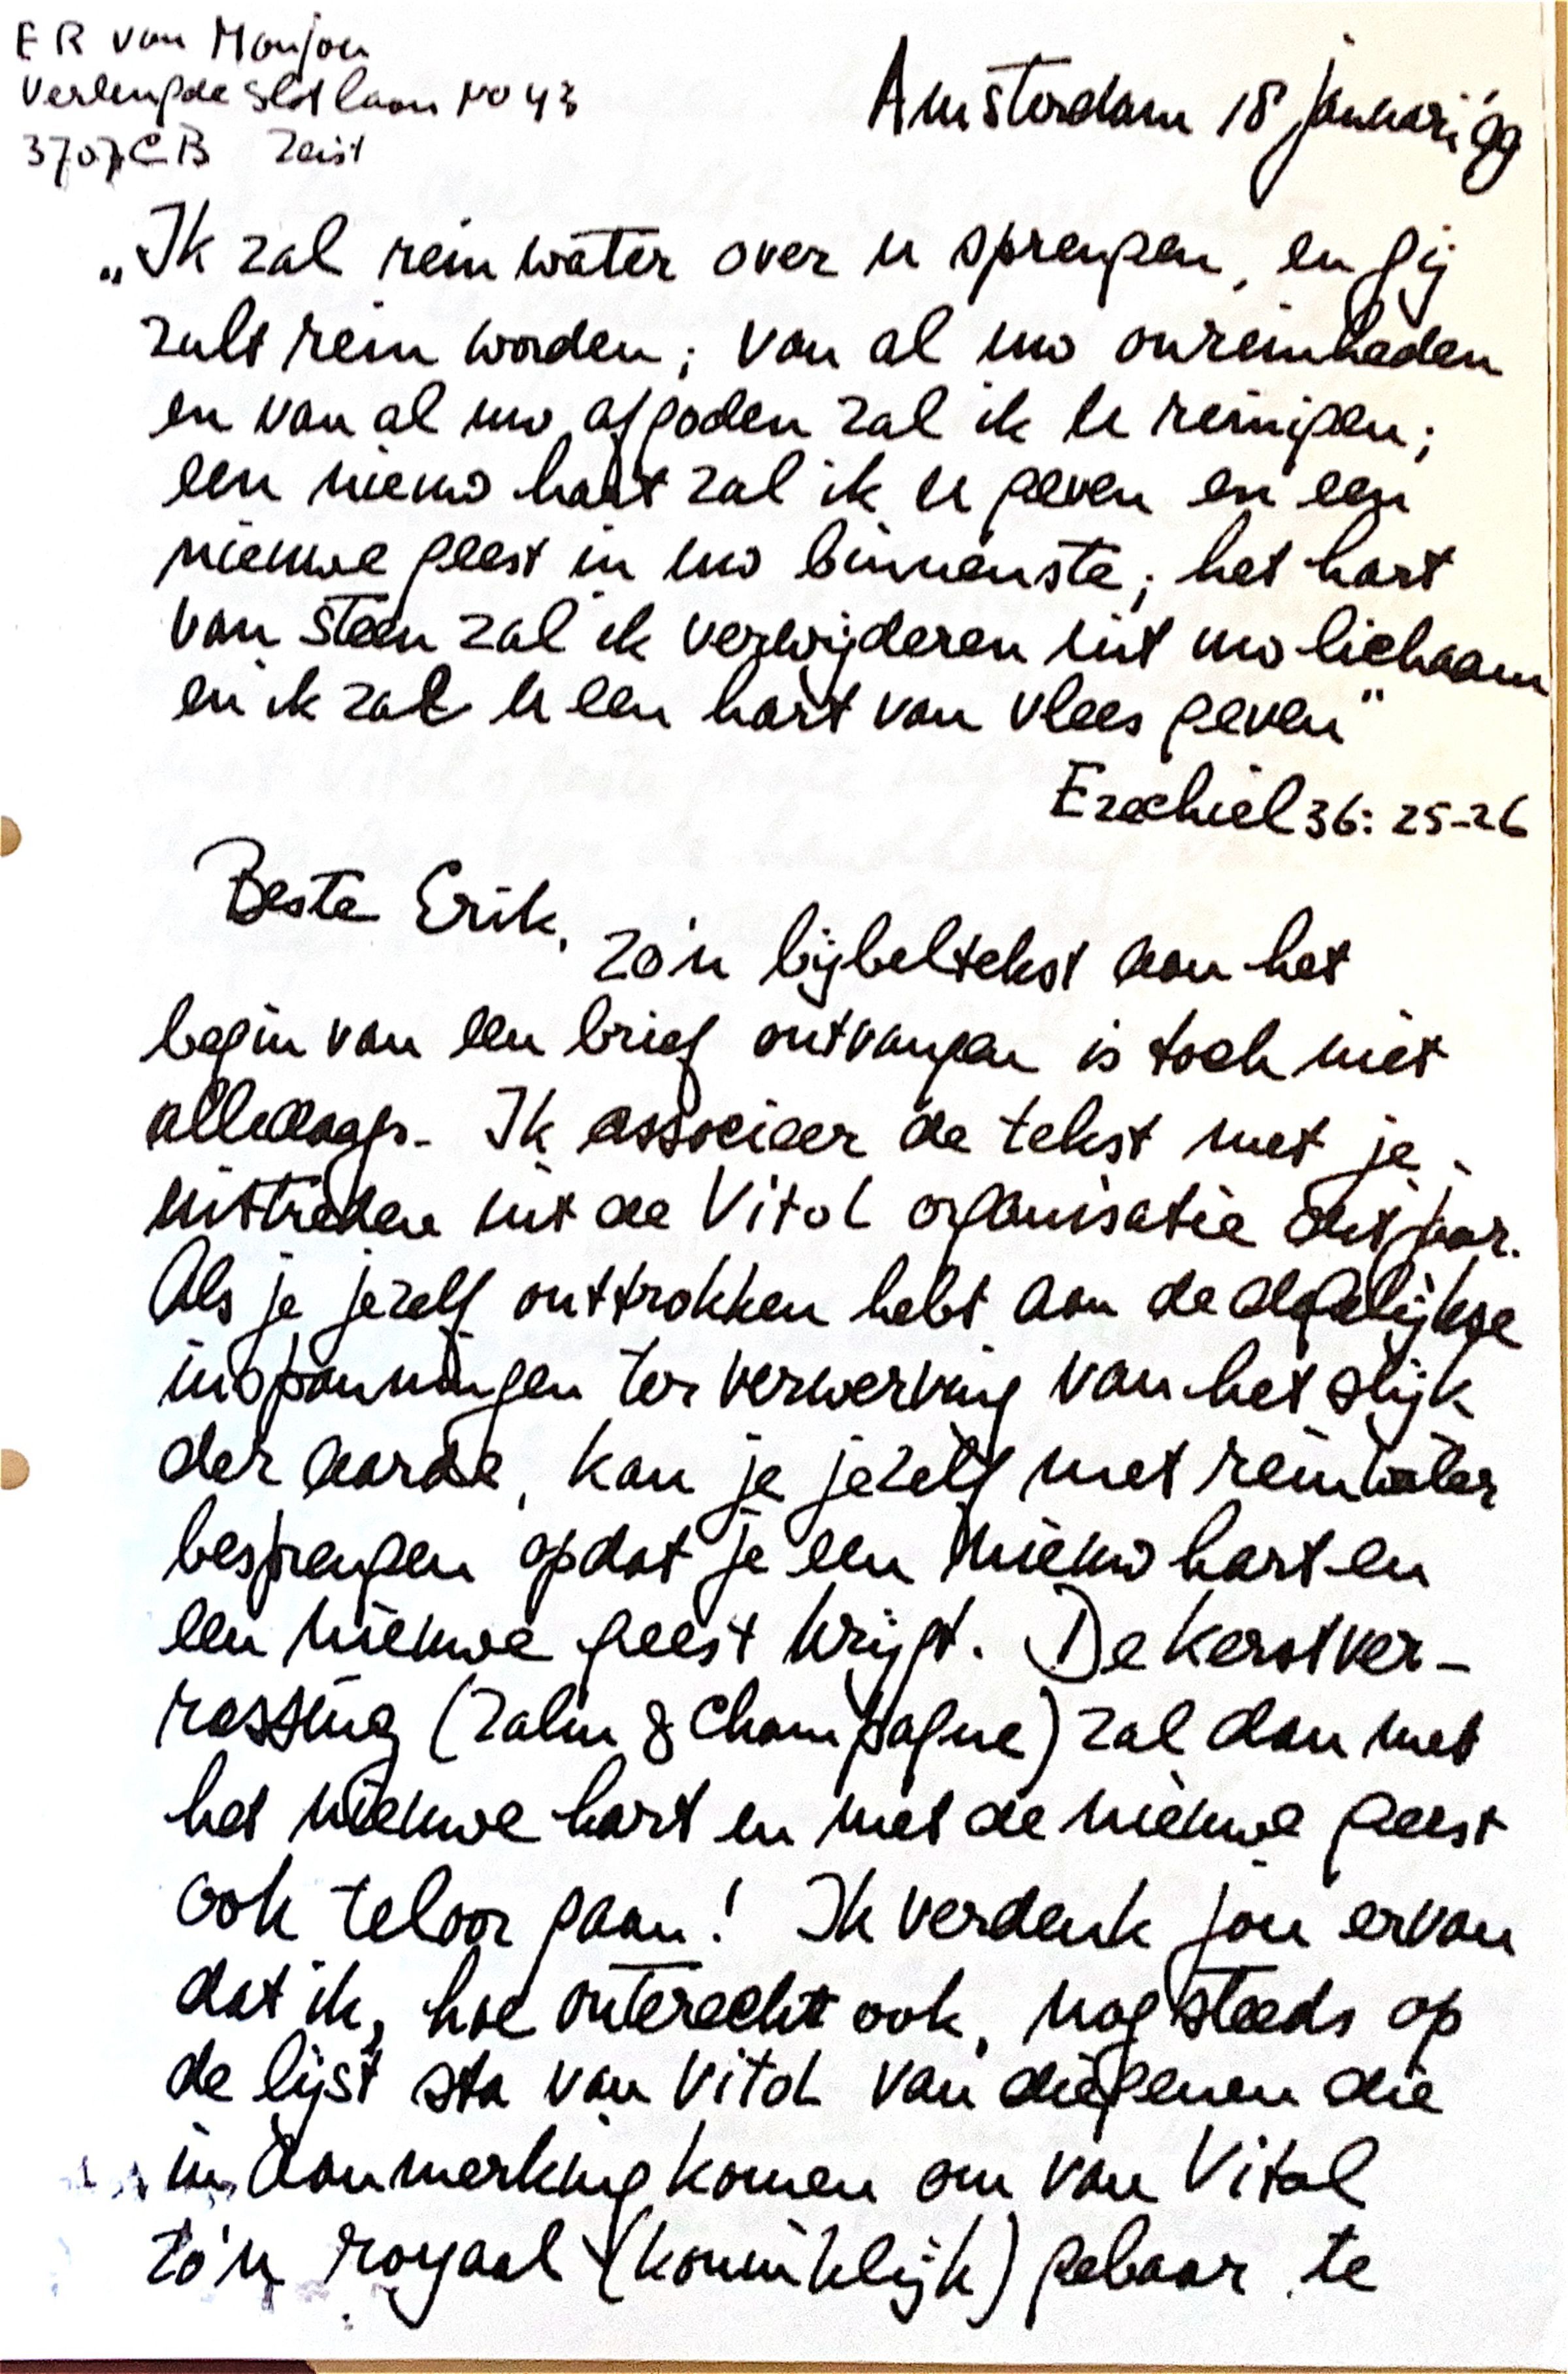 E R van Monjou
Verlengde Slotlaan No 43
3707 CB Zeist
Amsterdam 18 januari '99
„Ik zal rein water over u sprengen, en gij
zult rein worden; van al uw onreinheden
en van al uw afgoden zal ik u reinigen;
een nieuw hart zal ik u geven en een
nieuwe geest in uw binnenste; het hart
van steen zal ik verwijderen uit uw lichaam
en ik zal u een hart van vlees geven"
Ezechiel 36: 25-26
Beste Erik,
zo'n bijbeltekst aan het
begin van een brief ontvangen is toch niet
alledaags. Ik associeer de tekst met je
uittreden uit de Vitol organisatie dit jaar.
Als je jezelf onttrokken hebt aan de dagelijkse
inspanningen ter verwerving van het slijk
der aarde, kan je jezelf met rein water
besprengen opdat je een nieuw hart en
een nieuwe geest krijgt. De kerstver-
rassing (zalm & champagne) zal dan met
het nieuwe hart en met de nieuwe geest
ook teloor gaan! Ik verdenk jou ervan
dat ik, hoe onterecht ook, nog steeds op
de lijst sta van Vitol van diegenen die
in aanmerking komen om van Vitol
zo'n royaal (koninklijk) gebaar te